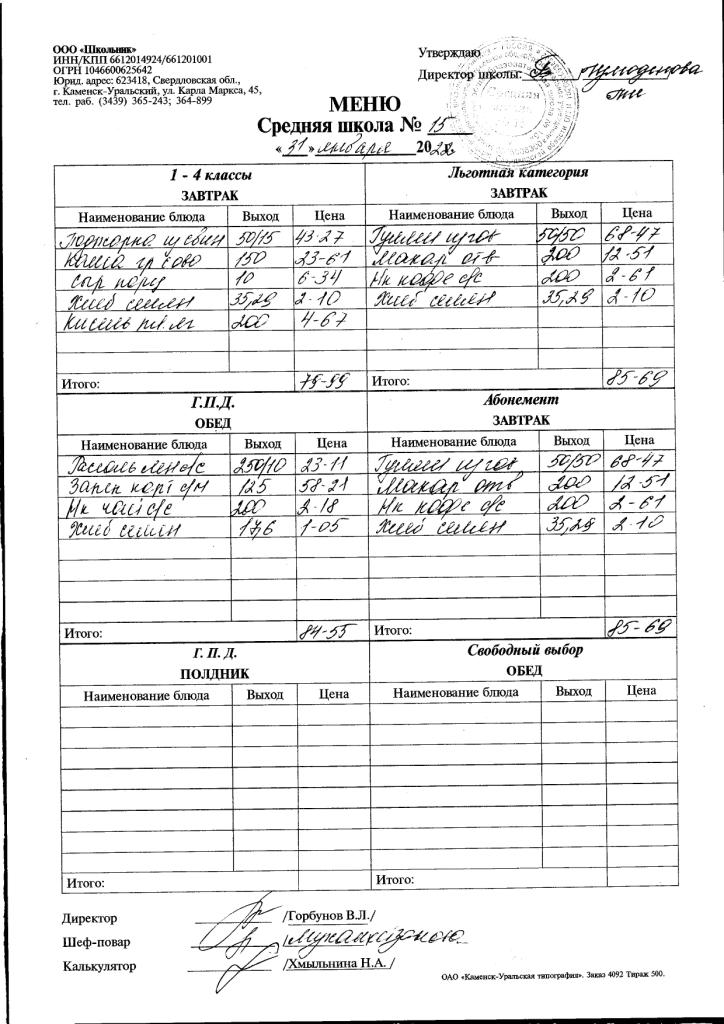 ООО «Школьник»
ИНН/КПП 6612014924/661201001
ОГРН 1046600625642
Юрид. адрес: 623418, Свердловская обл.,
г. Каменск-Уральский, ул. Карла Маркса, 45,
тел. раб. (3439) 365-243; 364-899
Утверждаю
Директор школы:
МЕНЮ
Средняя школа № 15
« 31 » января 2023 г.
1 - 4 классы
ЗАВТРАК
Наименование блюда Выход Цена
Поджарка из свин 50/15 43-27
Каша 150 23-61
Сыр порц 10 6-34
Хлеб семен 35,29 2-10
Кисель пл. яг 200 4-67
Итого: 79-99
Льготная категория
ЗАВТРАК
Наименование блюда Выход Цена
Гуляш из гов 50/50 68-47
Макар отв 200 12-51
Нк кофе с/с 200 2-61
Хлеб семен 35,29 2-10
Итого: 85-69
Г.П.Д.
ОБЕД
Наименование блюда Выход Цена
Рассоль лен с/с 250/10 23-11
Запек карт с/м 125 58-21
Нк чай с/с 200 2-18
Хлеб семен 17,6 1-05
Итого: 84-55
Абонемент
ЗАВТРАК
Наименование блюда Выход Цена
Гуляш из гов 50/50 68-47
Макар отв 200 12-51
Нк кофе с/с 200 2-61
Хлеб семен 35,29 2-10
Итого: 85-69
Г. П. Д.
ПОЛДНИК
Наименование блюда Выход Цена
Итого:
Свободный выбор
ОБЕД
Наименование блюда Выход Цена
Итого:
Директор /Горбунов В.Л./
Шеф-повар
Калькулятор /Хмыльнина Н.А. /
ОАО «Каменск-Уральская типография». Заказ 4092 Тираж 500.